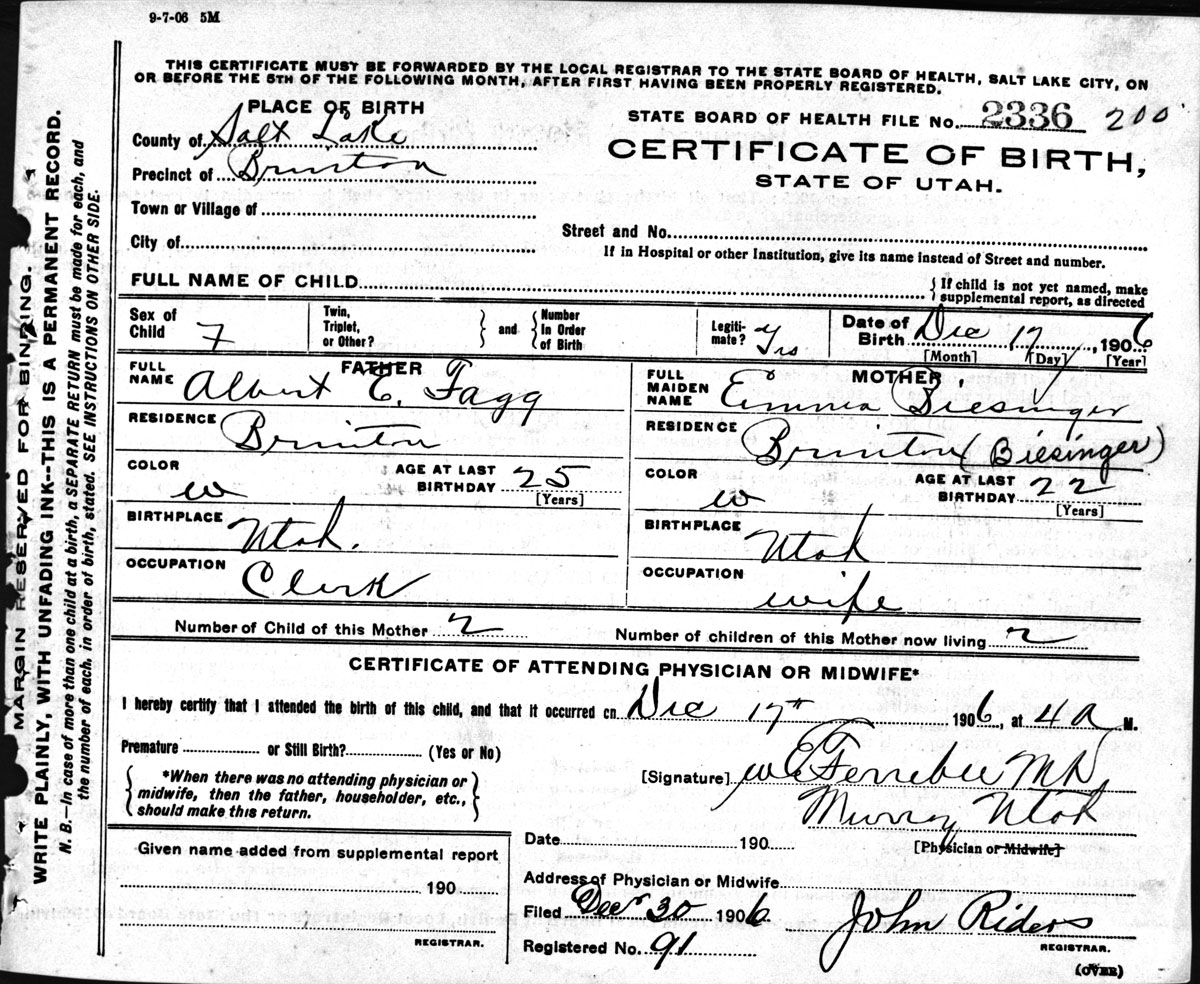 9-7-06 5M
THIS CERTIFICATE MUST BE FORWARDED BY THE LOCAL REGISTRAR TO THE STATE BOARD OF HEALTH, SALT LAKE CITY, ON
OR BEFORE THE 5TH OF THE FOLLOWING MONTH, AFTER FIRST HAVING BEEN PROPERLY REGISTERED.
PLACE OF BIRTH
County of Salt Lake
Precinct of Brinton
Town or Village of
City of
STATE BOARD OF HEALTH FILE No. 2336 200
CERTIFICATE OF BIRTH,
STATE OF UTAH.
Street and No.
If in Hospital or other Institution, give its name instead of Street and number.
FULL NAME OF CHILD
{ If child is not yet named, make
supplemental report, as directed
Sex of
Child F
Twin,
Triplet,
or Other?
} and {
Number
In Order
of Birth
Legiti-
mate? Yrs
Date of
Birth Dec 17, 1906
[Month] [Day] [Year]
FATHER
FULL
NAME Albert E. Fagg
RESIDENCE Brinton
COLOR w
AGE AT LAST
BIRTHDAY 25
[Years]
BIRTHPLACE Utah.
OCCUPATION Clerk
MOTHER
FULL
MAIDEN
NAME Emma Biesinger
RESIDENCE Brinton (Biesinger)
COLOR w
AGE AT LAST
BIRTHDAY 22
[Years]
BIRTHPLACE Utah
OCCUPATION wife
Number of Child of this Mother 2
Number of children of this Mother now living 2
CERTIFICATE OF ATTENDING PHYSICIAN OR MIDWIFE*
I hereby certify that I attended the birth of this child, and that it occurred on Dec 17th 1906, at 4 a M.
Premature or Still Birth? (Yes or No)
{ *When there was no attending physician or
midwife, then the father, householder, etc.,
should make this return. }
[Signature] W E Ferrebee MD
Murray Utah
[Physician or Midwife]
Date 190
Address of Physician or Midwife
Given name added from supplemental report
190
REGISTRAR.
Filed Decr 30 1906
John Riders
REGISTRAR.
Registered No. 91
(OVER)
MARGIN RESERVED FOR BINDING.
WRITE PLAINLY, WITH UNFADING INK--THIS IS A PERMANENT RECORD.
N. B.—In case of more than one child at a birth, a SEPARATE RETURN must be made for each, and
the number of each, in order of birth, stated. SEE INSTRUCTIONS ON OTHER SIDE.